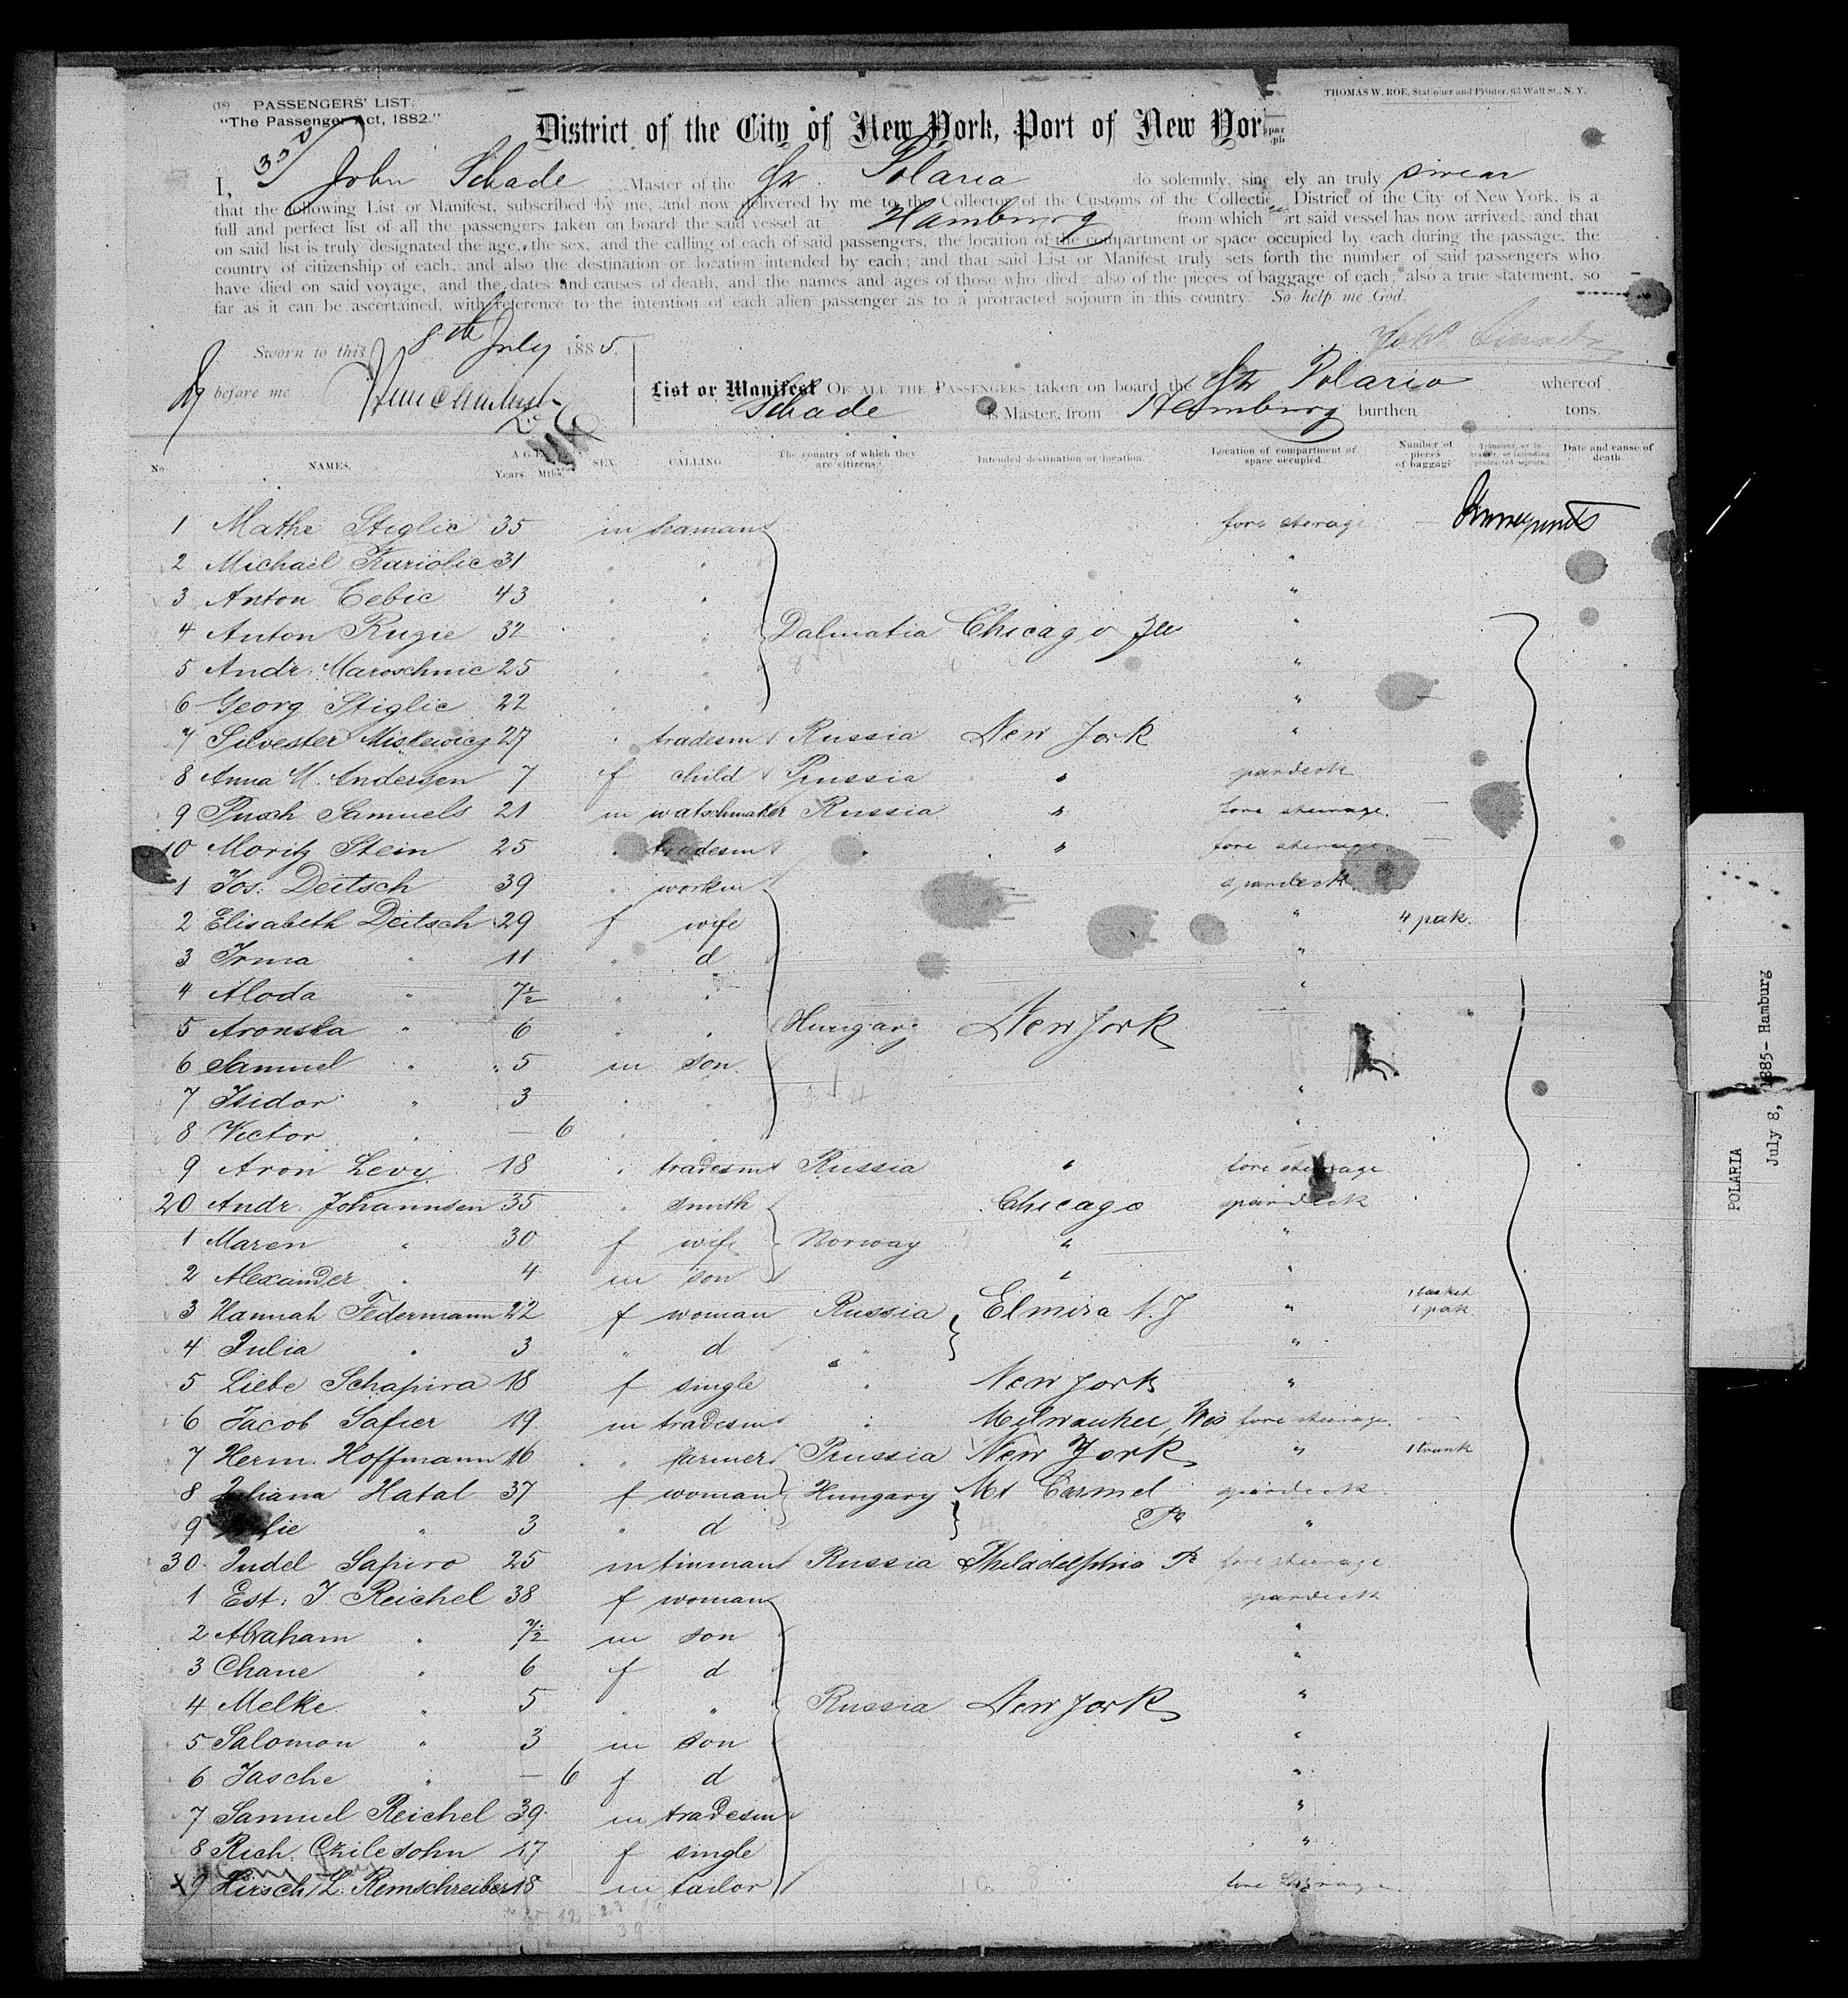 (18) PASSENGERS' LIST.
"The Passenger Act, 1882."
THOMAS W. ROE, Stationer and Printer, 63 Wall St., N. Y.
District of the City of New York, Port of New Yor
I, John Schade Master of the Str Polaria do solemnly, sinc ely an truly swear
that the following List or Manifest, subscribed by me, and now delivered by me to the Collector of the Customs of the Collectio District of the City of New York, is a
full and perfect list of all the passengers taken on board the said vessel at Hamburg from which rt said vessel has now arrived, and that
on said list is truly designated the age, the sex, and the calling of each of said passengers, the location of the compartment or space occupied by each during the passage, the
country of citizenship of each, and also the destination or location intended by each; and that said List or Manifest truly sets forth the number of said passengers who
have died on said voyage, and the dates and causes of death, and the names and ages of those who died; also of the pieces of baggage of each; also a true statement, so
far as it can be ascertained, with reference to the intention of each alien passenger as to a protracted sojourn in this country. So help me God.
Sworn to this 8th July 1885.
before me
List or Manifest OF ALL THE PASSENGERS taken on board the Str Polaria whereof
Schade is Master, from Hamburg burthen tons.
No. NAMES. AGE. Years Mths. SEX. CALLING The country of which they are citizens. Intended destination or location. Location of compartment of space occupied. Number of pieces of baggage Date and cause of death.
1 Mathe Stiglic 35 m seaman fore sterage
2 Michail Kariolic 31 " "
3 Anton Cebic 43 " "
4 Anton Rugie 32 " " Dalmatia Chicago Ill "
5 Andr. Maroschnic 25 " " "
6 Georg Stiglic 22 " " "
7 Silvester Miskewicz 27 " tradesm Russia New York "
8 Anna M. Andersen 7 f child Prussia " spardeck
9 Pinch Samuels 21 m watschmaker Russia " fore steerage
10 Moritz Stein 25 " tradesm " " fore steerage
1 Jos. Deitsch 39 " workm spardeck
2 Elisabeth Deitsch 29 f wife " 4 pak.
3 Irma " 11 " d "
4 Aloda " 7½ " " "
5 Aronska " 6 " " Hungary New York
6 Samuel " 5 m son
7 Isidor " 3 " " "
8 Victor " — 6 " " "
9 Aron Levy 18 " tradesm Russia " fore steerage
20 Andr. Johannsen 35 " smith Chicago spardeck
1 Maren " 30 f wife Norway " "
2 Alexander " 4 m son " "
3 Hannah Federmann 22 f woman Russia Elmira N.J " 1 basket 1 pak
4 Julia " 3 " d " "
5 Liebe Schapira 18 f single " New York "
6 Jacob Safier 19 m tradesm " Milwaukee, Wis fore steerage
7 Herm. Hoffmann 16 " farmer Prussia New York " 1 trunk
8 Juliana Hatal 37 f woman Hungary Mt Carmel spardeck
9 " 3 " d Pa "
30 Judel Sapiro 25 m tinman Russia Philadelphia Pa fore steerage
1 Est. J. Reichel 38 f woman spardeck
2 Abraham " 7½ m son "
3 Chane " 6 f d "
4 Melke " 5 " " Russia New York "
5 Salomon " 3 m son "
6 Jasche " — 6 f d "
7 Samuel Reichel 39 m tradesm "
8 Rich. Czilesohn 17 f single "
x9 Hirsch L. Remschreiber 18 m tailor
POLARIA
July 8, 1885- Hamburg